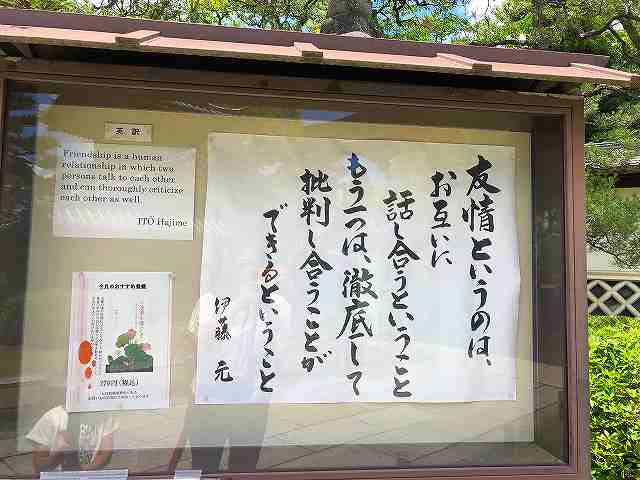 友情というのは、
お互いに
話し合うということ
もう一つは、徹底して
批判し合うことが
できるということ
伊藤 元
英訳
Friendship is a human
relationship in which two
persons talk to each other
and can thoroughly criticize
each other as well.
ITŌ Hajime
今月のおすすめ書籍
270円(税込)